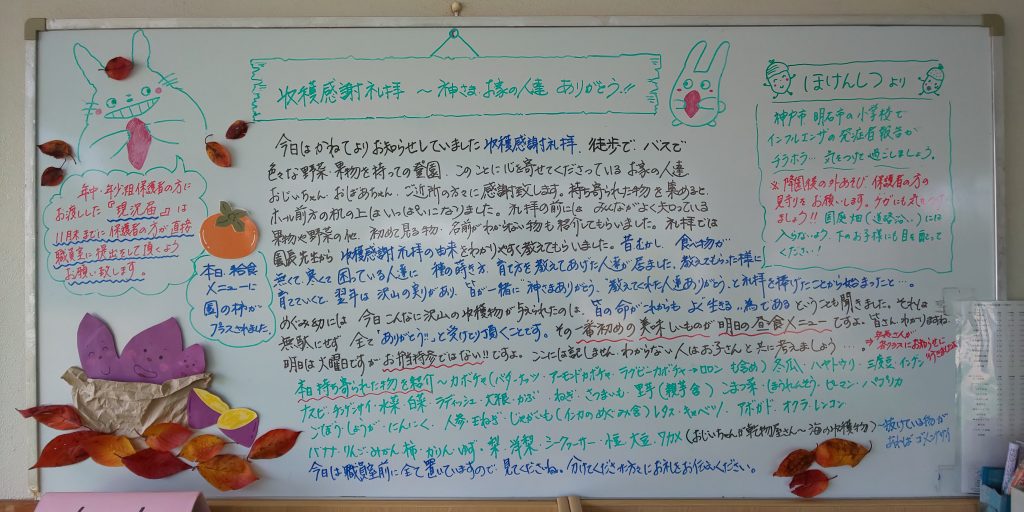 収穫感謝礼拝 〜神さま・お家の人達 ありがとう!!
今日は かねてよりお知らせしていました 収穫感謝礼拝。徒歩で・バスで
色々な野菜・果物を持っての登園。このことに心を寄せてくださっている お家の人達
おじいちゃん・おばあちゃん・ご近所の方々に感謝致します。持ち寄られた物を集めると、
ホール前方の机の上は いっぱいになりました。礼拝の前には みんながよく知っている
果物や野菜の他、初めて見る物・名前がわからない物も紹介してもらいました。礼拝では
園長先生から 収穫感謝礼拝の由来をわかりやすく教えてもらいました。昔むかし、食べ物が
無くて、寒くて 困っている人達に 種の蒔き方、育て方を教えてあげた人達が居ました。教えてもらった様に
育てていくと 翌年は 沢山の実りがあり、皆が一緒に 神さまありがとう、教えてくれた人達ありがとう、と礼拝を捧げたことから始まったこと…。
めぐみ幼には 今日こんなに沢山の収穫物が与えられたのは、皆の命がこれからも よく生きる為であるということも聞きました。それは
無駄にせず 全て"ありがとう"っと受けとり頂くことです。その一番初めの美味しいものが明日の昼食メニューですよ。皆さんわかりますね。
明日は火曜日ですが お弁当持参ではない!!ですよ。ここには記しません、わからない人はお子さんと共に考えましょう…。
本日持ち寄られた物を紹介〜カボチャ(バターナッツ・アーモンドカボチャ・ラグビーカボチャ→ロロン も含め) 冬瓜・ハヤトウリ・三度豆・インゲン
ナスビ・チンゲンサイ・水菜・白菜・ラディッシュ・大根・かぶ・ねぎ・さつまいも・里芋(親芋含)・こまつ菜・ほうれんそう・ピーマン・パプリカ
ごぼう・しょうが・にんにく・人参・玉ねぎ・じゃがいも(インカのめぐみ含)・レタス・キャベツ・アボガド・オクラ・レンコン
バナナ・りんご・みかん・柿・かりん・ゆず・梨・洋梨・シークァーサー・栗・大豆・ワカメ(おじいちゃんが乾物屋さん〜海の収穫物)〜抜けている物が
あれば ゴメンナサイ
今日は職員室前に全て置いていますので 見てくださいね。分けてくださった方々にお礼をお伝えください。
年中・年少組保護者の方に
お渡しした『現況届』は
11月末までに 保護者の方が直接
職員室に提出をして頂くよう
お願い致します。
本日、給食
メニューに
園の柿が
プラスされました。
ほけんしつ より
神戸市 明石市の小学校で
インフルエンザの発症者報告が
チラホラ… 気をつけて過ごしましょう。
※降園後の外あそび、保護者の方の
見守りをお願いします。ケガにも気をつけ
ましょう!! 園庭畑(道路沿い)には
入らないよう、下のお子様にも目を配って
ください!